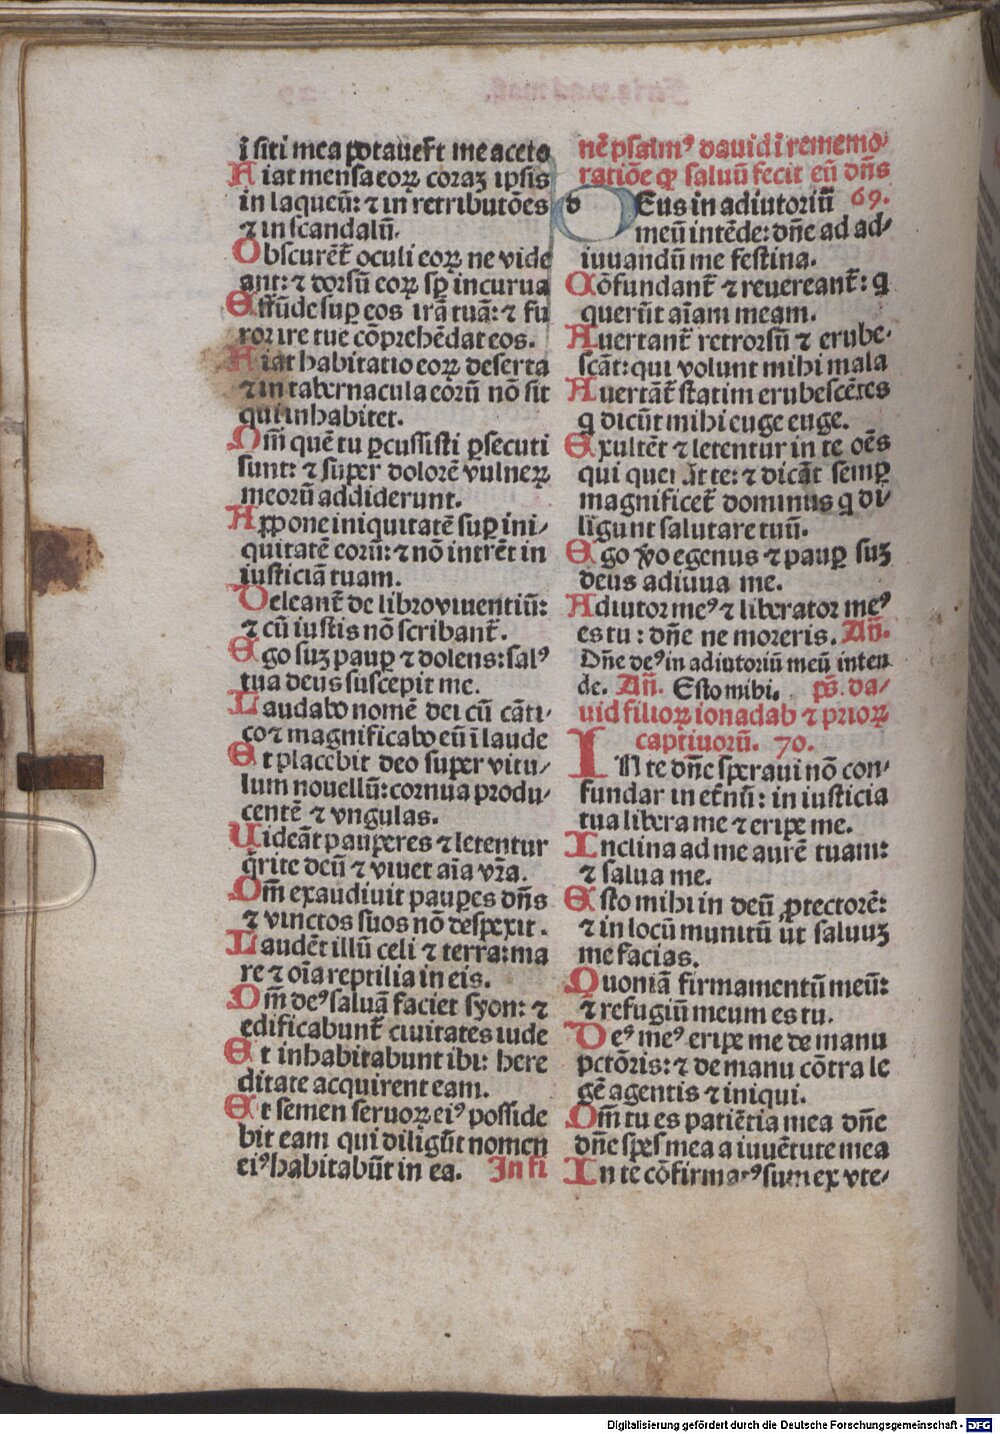 ī siti mea potaueřt me aceto
Fiat mensa eoꝝ coraꝫ ipsis
in laqueū: ⁊ in retributōes
⁊ in scandalū.
Obscurēt̄ oculi eoꝝ ne vide
ant: ⁊ dorsū eoꝝ sꝑ incurua
Effūde suꝑ eos irā tuā: ⁊ fu
ror ire tue cōprehēdat eos.
Fiat habitatio eoꝝ deserta
⁊ in tabernacula eorū nō sit
qui inhabitet.
Qm̄ quē tu ꝑcussisti ꝑsecuti
sunt: ⁊ super dolorē vulneꝝ
meorū addiderunt.
Appone iniquitatē suꝑ ini/
quitatē eorū: ⁊ nō intrēt in
iusticiā tuam.
Deleant̄ de libro viuentiū:
⁊ cū iustis nō scribant̄.
Ego suꝫ pauꝑ ⁊ dolens: salꝰ
tua deus suscepit me.
Laudabo nomē dei cū cāti/
co ⁊ magnificabo eū ī laude
Et placebit deo super vitu/
lum nouellū: cornua produ/
centē ⁊ vngulas.
Uideāt pauperes ⁊ letentur
q̄rite deū ⁊ viuet aīa vr̄a.
Qm̄ exaudiuit pauꝑes dn̄s
⁊ vinctos suos nō despexit.
Laudēt illū celi ⁊ terra: ma
re ⁊ oīa reptilia in eis.
Qm̄ deꝰ saluā faciet syon: ⁊
edificabunt̄ ciuitates iude
Et inhabitabunt ibi: here
ditate acquirent eam.
Et semen seruoꝝ eiꝰ posside
bit eam qui diligūt nomen
eiꝰ habitabūt in ea. In fi
nē psalmꝰ dauid ī rememo/
ratiōe ꝙ saluū fecit eū dn̄s
Deus in adiutoriū 69.
meū intēde: dn̄e ad ad/
iuuandū me festina.
Cōfundant̄ ⁊ reuereant̄: q
querūt aīam meam.
Auertant̄ retrorsū ⁊ erube/
scāt: qui volunt mihi mala
Auertāt̄ statim erubescētes
q dicūt mihi euge euge.
Exultēt ⁊ letentur in te oēs
qui que āt te: ⁊ dicāt semꝑ
magnificet̄ dominus q di/
ligunt salutare tuū.
Ego v̄o egenus ⁊ pauꝑ suꝫ
deus adiuua me.
Adiutor meꝰ ⁊ liberator meꝰ
es tu: dn̄e ne moreris. Añ.
Dn̄e deꝰ in adiutoriū meū inten
de. Añ. Esto mihi. ps̄. da/
uid filioꝝ ionadab ⁊ prioꝝ
captiuorū. 70.
IN te dn̄e speraui nō con/
fundar in et̄nū: in iusticia
tua libera me ⁊ eripe me.
Inclina ad me aurē tuam:
⁊ salua me.
Esto mihi in deū ꝓtectorē:
⁊ in locū munitū ut saluuꝫ
me facias.
Quoniā firmamentū meū:
⁊ refugiū meum es tu.
Deꝰ meꝰ eripe me de manu
pctōris: ⁊ de manu cōtra le
gē agentis ⁊ iniqui.
Qm̄ tu es patiētia mea dn̄e
dn̄e spes mea a iuuētute mea
In te cōfirmatꝰ sum ex vte/
Digitalisierung gefördert durch die Deutsche Forschungsgemeinschaft - DFG